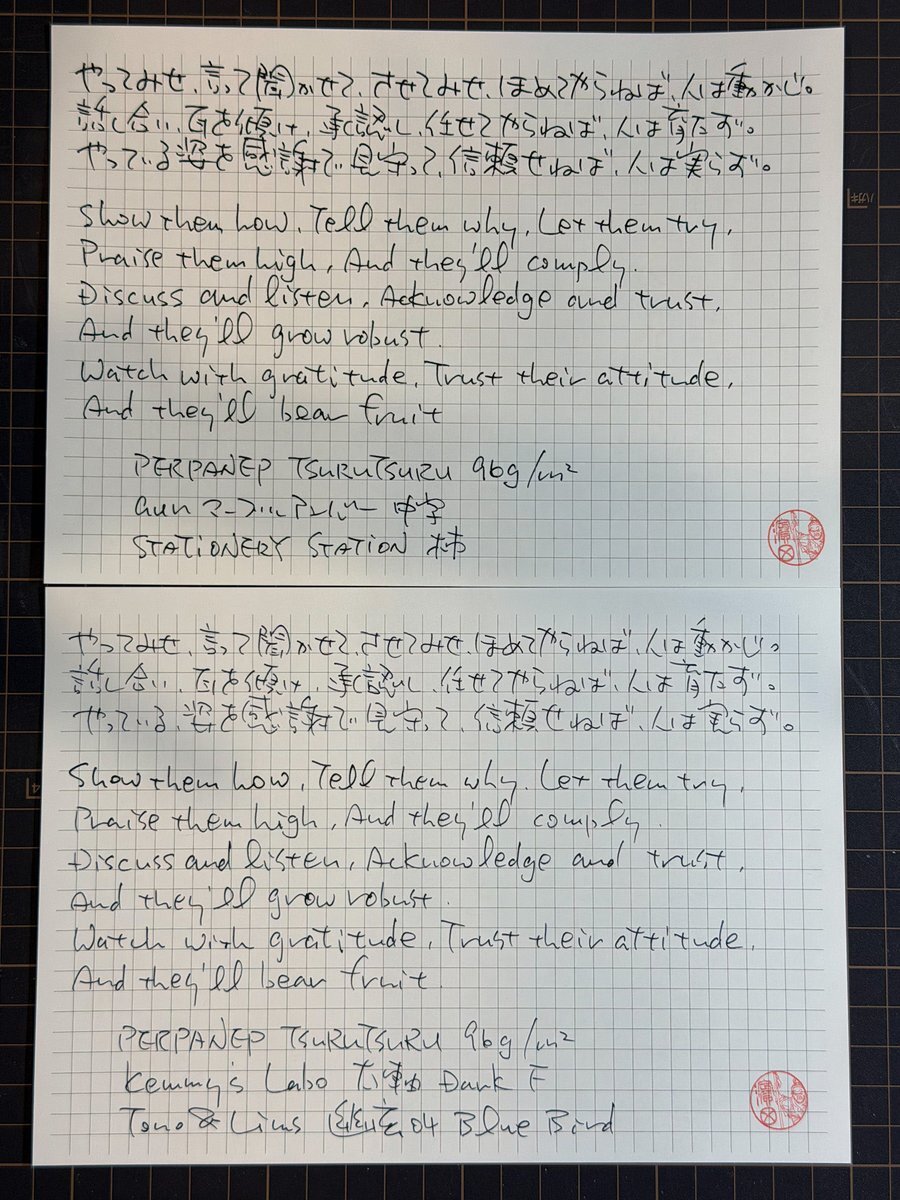 やってみせ、言って聞かせて、させてみせ、ほめてやらねば、人は動かじ。
話し合い、耳を傾け、承認し、任せてやらねば、人は育たず。
やっている、姿を感謝で見守って、信頼せねば、人は実らず。
Show them how, Tell them why, Let them try,
Praise them high, And they'll comply.
Discuss and listen, Acknowledge and trust,
And they'll grow robust.
Watch with gratitude, Trust their attitude,
And they'll bear fruit
PERPANEP TSURUTSURU 96g/m²
中字
STATIONERY STATION 柿
やってみせ、言って聞かせて、させてみせ、ほめてやらねば、人は動かじ。
話し合い、耳を傾け、承認し、任せてやらねば、人は育たず。
やっている、姿を感謝で見守って、信頼せねば、人は実らず。
Show them how, Tell them why, Let them try,
Praise them high, And they'll comply.
Discuss and listen, Acknowledge and trust,
And they'll grow robust.
Watch with gratitude, Trust their attitude,
And they'll bear fruit.
PERPANEP TSURUTSURU 96g/m²
Kemmy's Labo Dark F
Tono & Lims 04 Blue Bird